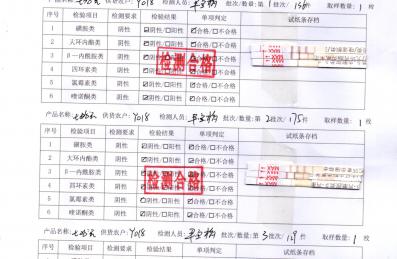 供货农户: Y018 检测人员: 批次/数量: 第1批次/156件 取样数量: 1 枚
序号 检验项目 检测要求 检验结果 单项判定 试纸条存档
1 磺胺类 阴性 ☑阴性/☐阳性 ☑合格/☐不合格
2 大环内酯类 阴性 ☑阴性/☐阳性 ☑合格/☐不合格
3 β一内酰胺类 阴性 ☑阴性/☐阳性 ☑合格/☐不合格
4 四环素类 阴性 ☑阴性/☐阳性 ☑合格/☐不合格
5 氯霉素类 阴性 ☑阴性/☐阳性 ☑合格/☐不合格
6 喹诺酮类 阴性 ☑阴性/☐阳性 ☑合格/☐不合格
检测合格
产品名称: 供货农户: Y018 检测人员: 批次/数量: 第2批次/175件 取样数量: 1 枚
序号 检验项目 检测要求 检验结果 单项判定 试纸条存档
1 磺胺类 阴性 ☑阴性/☐阳性 ☑合格/☐不合格
2 大环内酯类 阴性 ☑阴性/☐阳性 ☑合格/☐不合格
3 β一内酰胺类 阴性 ☑阴性/☐阳性 ☑合格/☐不合格
4 四环素类 阴性 ☑阴性/☐阳性 ☑合格/☐不合格
5 氯霉素类 阴性 ☑阴性/☐阳性 ☑合格/☐不合格
6 喹诺酮类 阴性 ☑阴性/☐阳性 ☑合格/☐不合格
检测合格
产品名称: 供货农户: Y018 检测人员: 批次/数量: 第3批次/ 取样数量: 1 枚
序号 检验项目 检测要求 检验结果 单项判定 试纸条存档
1 磺胺类 阴性 ☑阴性/☐阳性 ☑合格/☐不合格